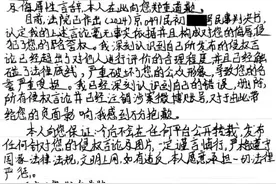 及侮辱性言辞,本人在此向您郑重道歉。
目前,法院已作出(2024)京0491民初 民事判决书,
认定我的上述言论毫无事实依据并且构成对您的侮辱,侵
犯了您的名誉权。我深刻认识到自己所发布的侵权言
论已经超出对他人进行评价的合理程度,并且已经触
碰了法律底线,严重破坏了您的公众形象,导致您的名
誉严重受损。我已深刻认识到自己的错误,删除
所有侵权言论并且已经注销涉案微博账号,对于由此带
给您的负面影响,我感到万分抱歉。
本人向您保证:今后不会在任何平台公开转载、发布
任何针对您的侵权言论及图片,一定谨言慎行,严格遵守
国家法律法规,文明上网,如有违反,本人愿意承担一切法律
声